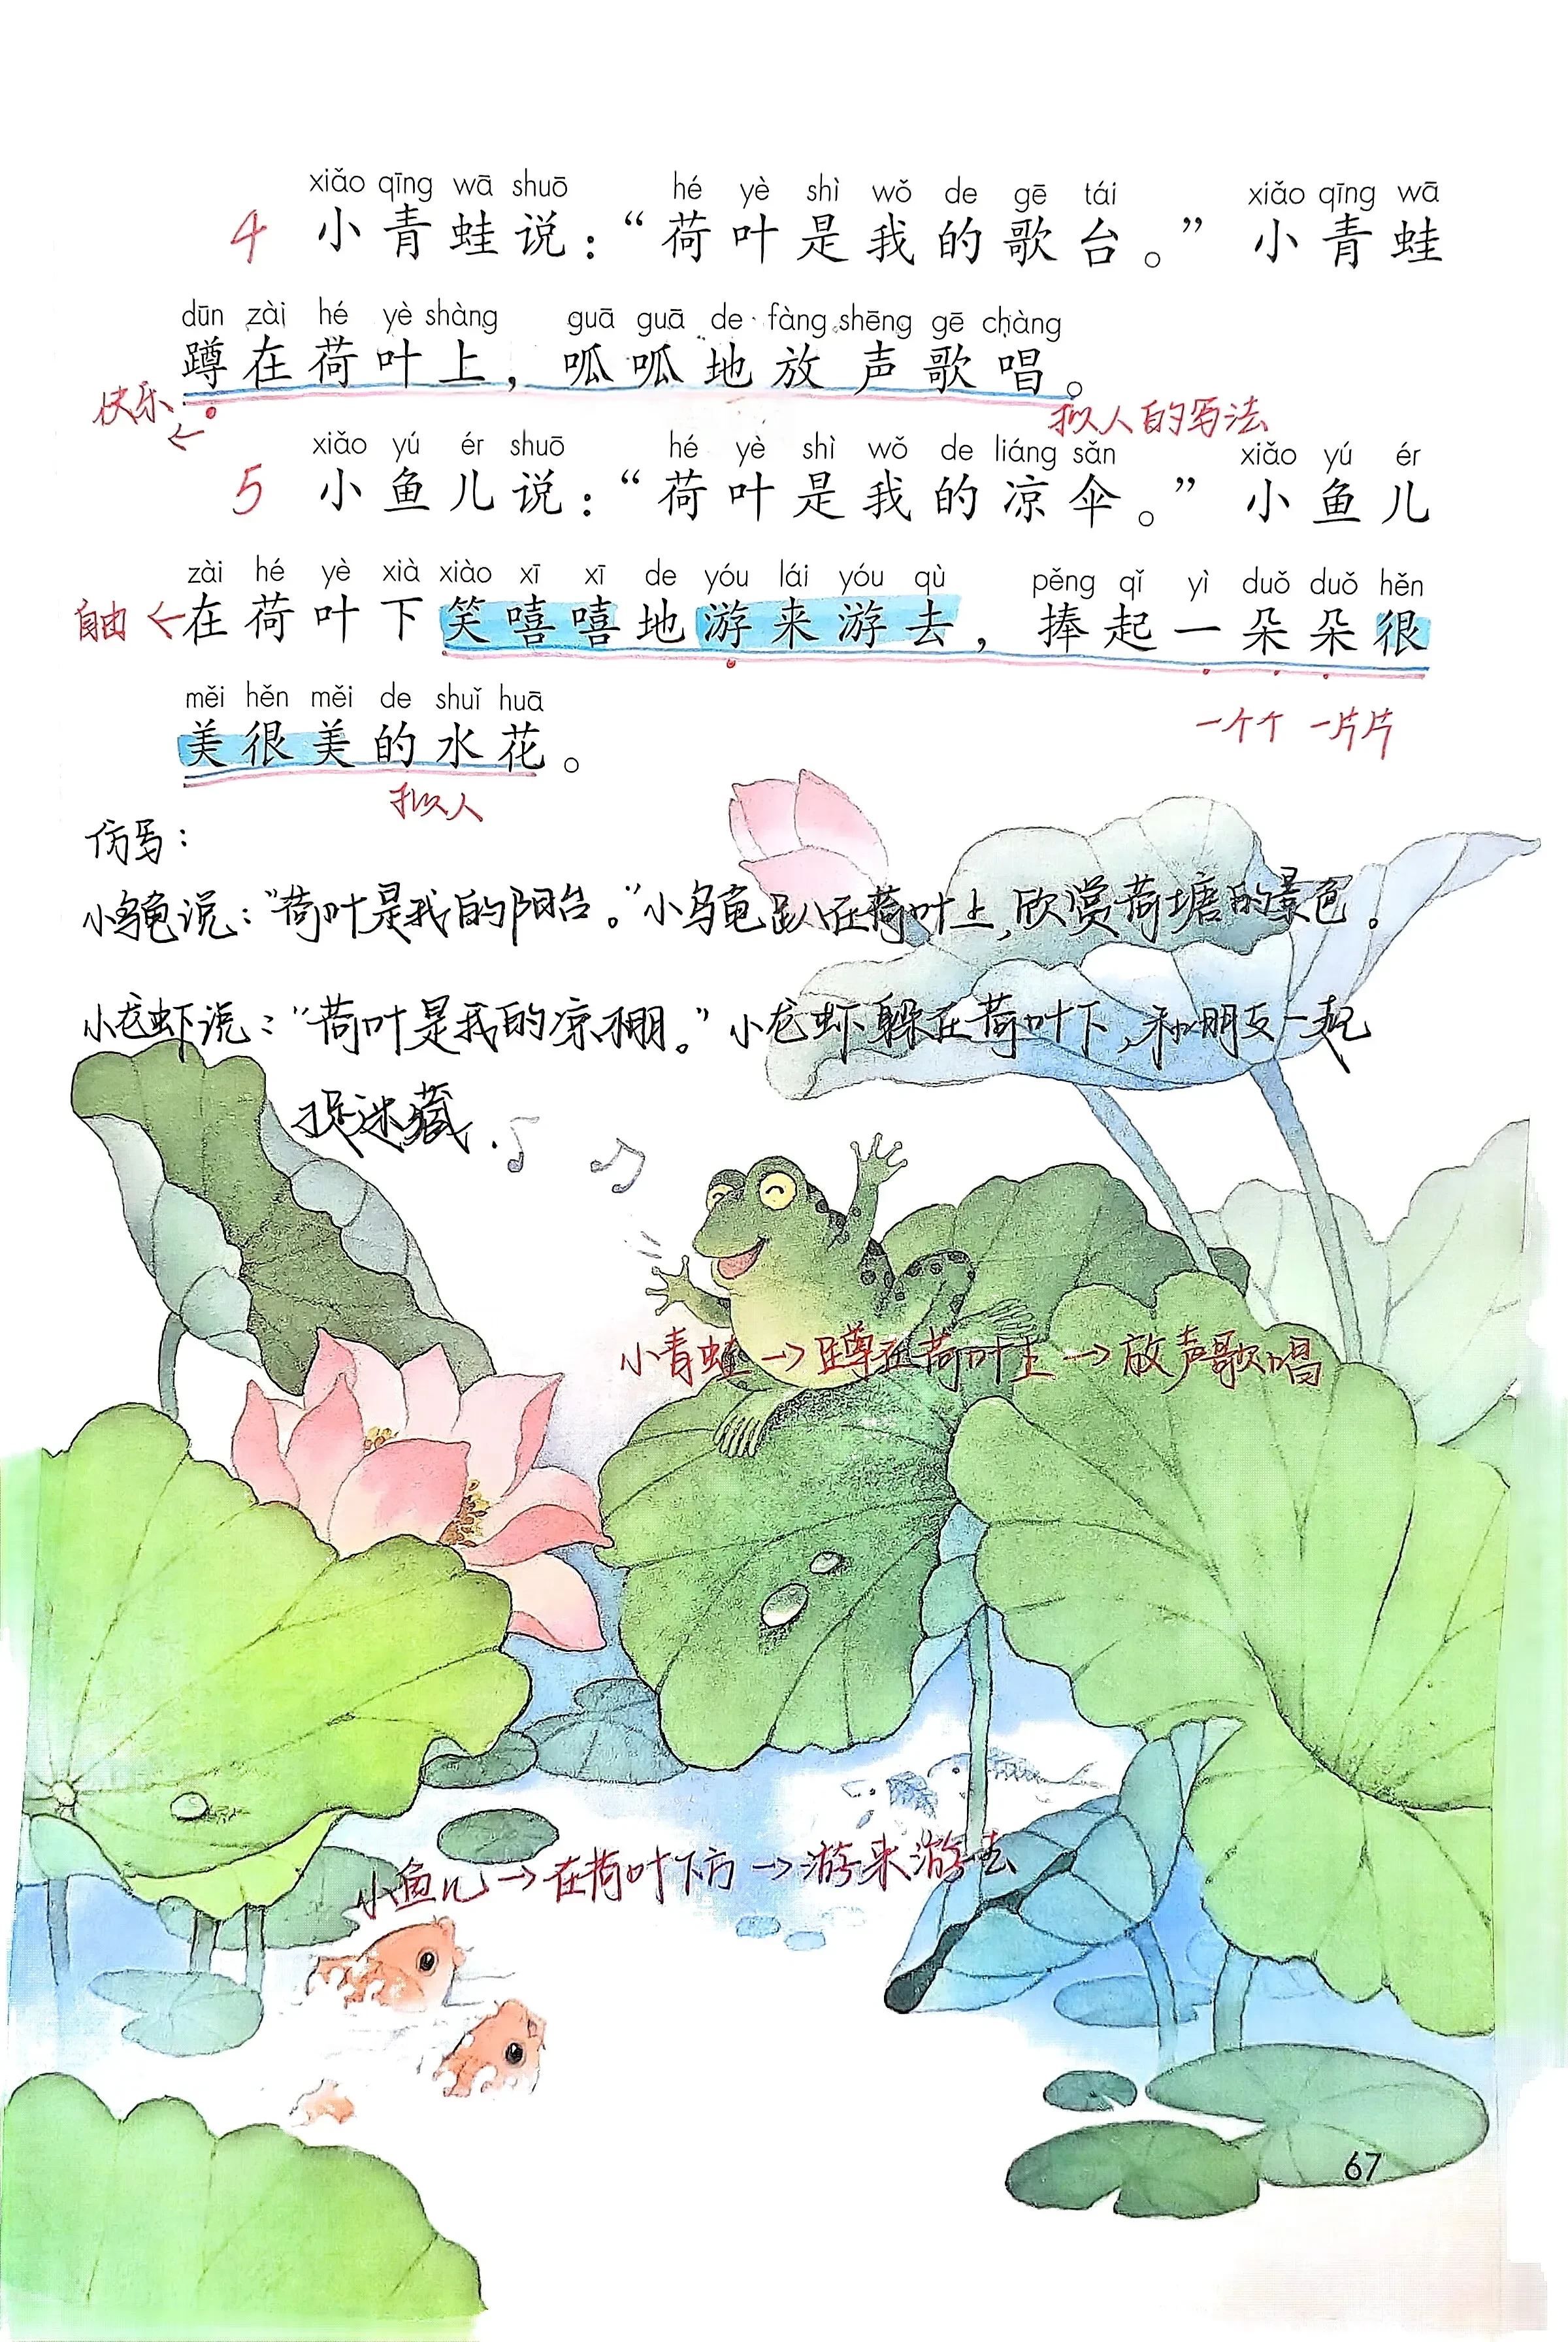 xiǎo qīng wā shuō hé yè shì wǒ de gē tái xiǎo qīng wā
4 小青蛙说：“荷叶是我的歌台。”小青蛙
dūn zài hé yè shàng guā guā de fàng shēng gē chàng
蹲在荷叶上，呱呱地放声歌唱。
快乐 ←
拟人的写法
xiǎo yú ér shuō hé yè shì wǒ de liáng sǎn xiǎo yú ér
5 小鱼儿说：“荷叶是我的凉伞。”小鱼儿
zài hé yè xià xiào xī xī de yóu lái yóu qù pěng qǐ yì duǒ duǒ hěn
自由 ← 在荷叶下笑嘻嘻地游来游去，捧起一朵朵很
měi hěn měi de shuǐ huā
一个个 一片片
美很美的水花。
拟人
仿写：
小乌龟说：“荷叶是我的阳台。”小乌龟趴在荷叶上，欣赏荷塘的景色。
小龙虾说：“荷叶是我的凉棚。”小龙虾躲在荷叶下，和朋友一起
捉迷藏.
小青蛙→蹲在荷叶上→放声歌唱
小鱼儿→在荷叶下方→游来游去
67